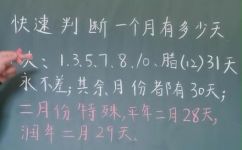 快速判断一个月有多少天
、1.3.5.7.8.10.腊(12)31天
永不差;其余月份都有30天;
二月份特殊,平年二月28天,
润年二月29天.